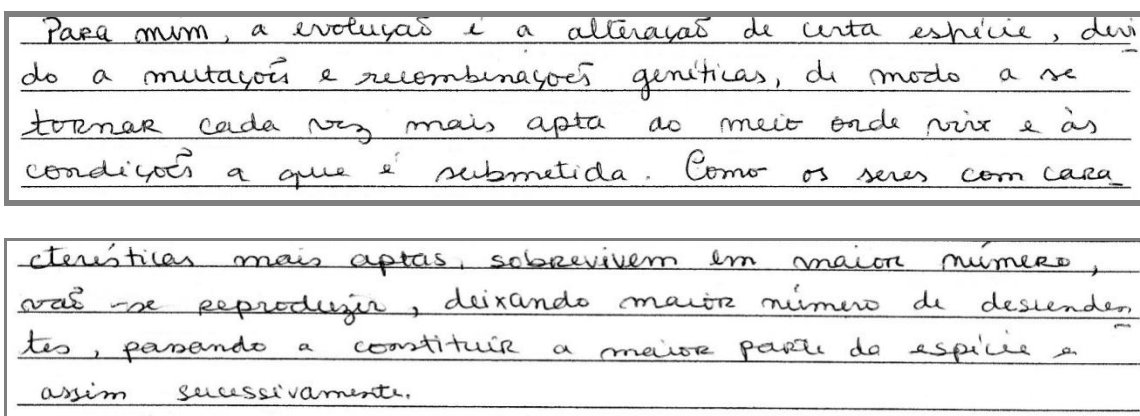 Para mim, a evolução é a alteração de certa espécie, devi
do a mutações e recombinações genéticas, de modo a se
tornar cada vez mais apta ao meio onde vive e às
condições a que é submetida. Como os seres com cara_
cterísticas mais aptas, sobrevivem em maior número,
vão-se reproduzir, deixando maior número de descenden
tes, passando a constituir a maior parte da espécie e
assim sucessivamente.